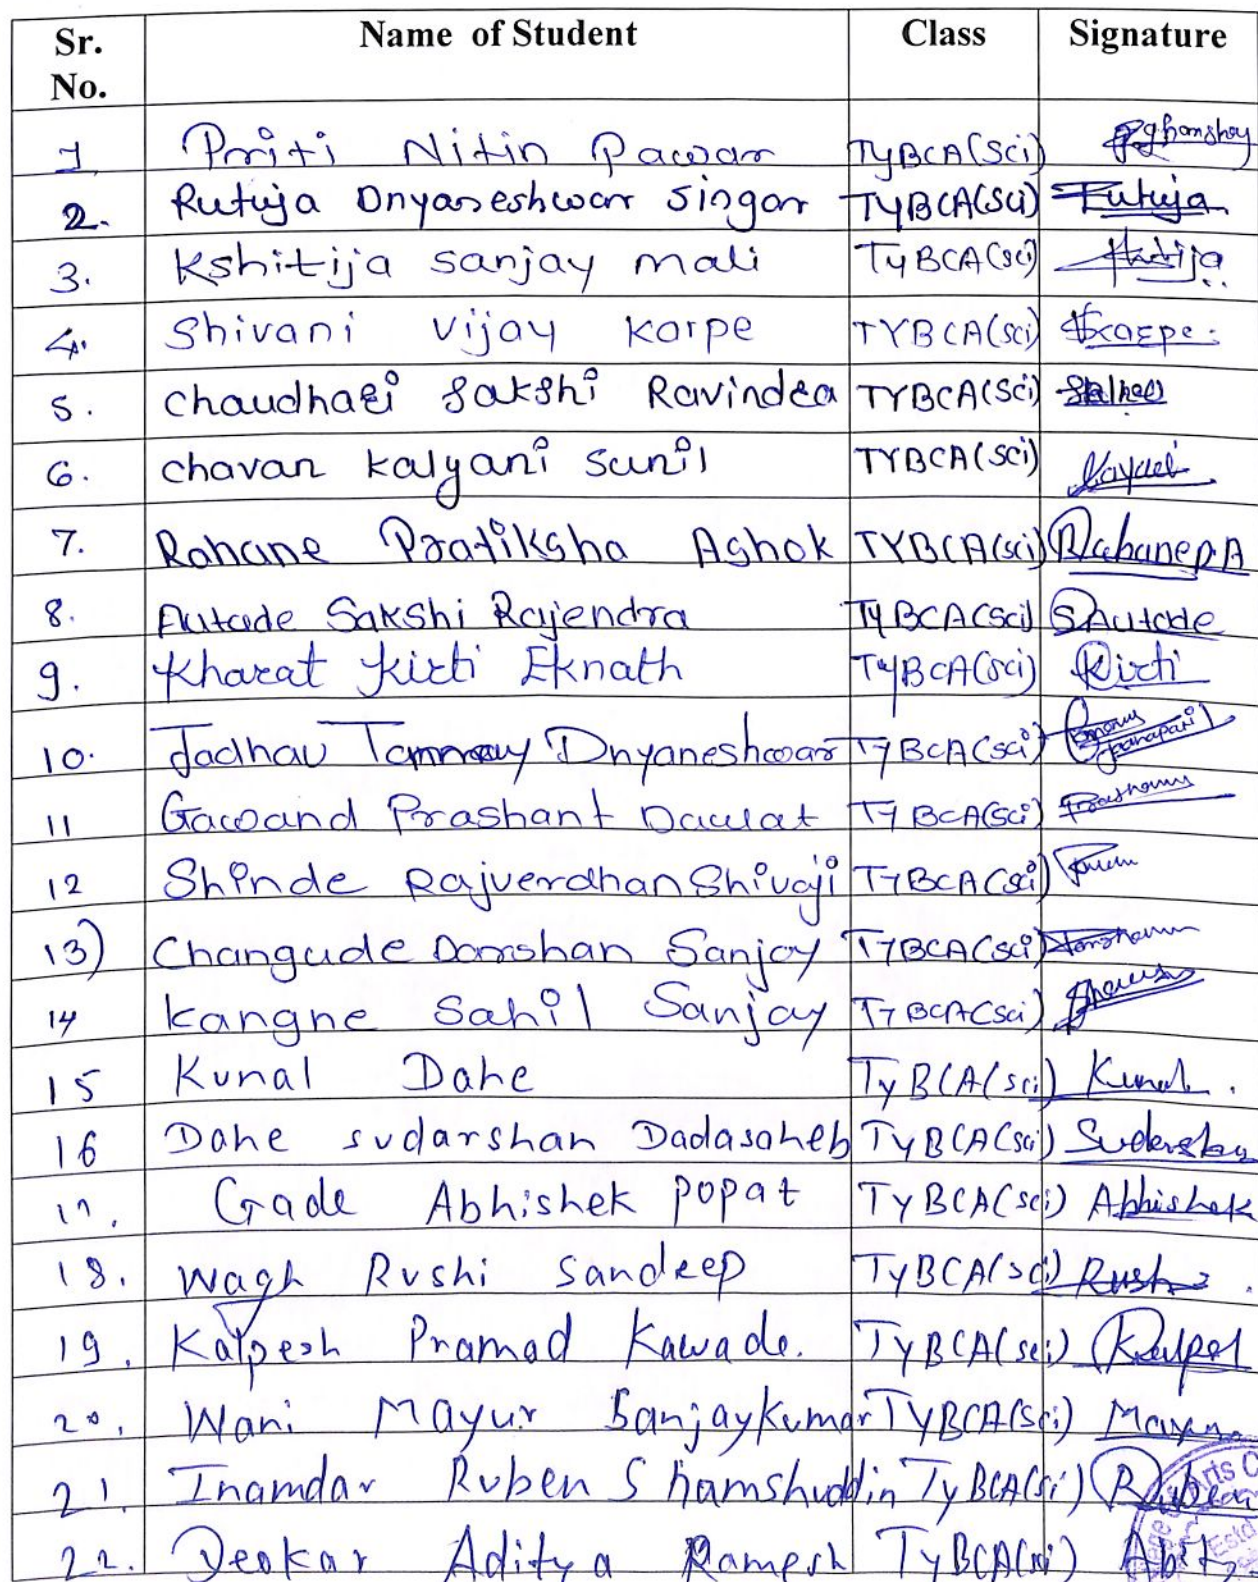 Sr. No. Name of Student Class Signature
1 Priti Nitin Pawar TyBCA(Sci)
2. Rutuja Dnyaneshwar Singar TyBCA(Sci) Rutuja
3. Kshitija sanjay mali TyBCA(sci)
4. Shivani vijay karpe TYBCA(sci)
5. chaudhari Sakshi Ravindra TYBCA(Sci)
6. chavan kalyani sunil TYBCA(sci)
7. Rahane Pratiksha Ashok TYBCA(sci) RahanepA
8. Autade Sakshi Rajendra TyBCA(sci) SAutade
9. Kharat Kirti Eknath TyBCA(sci) Kirti
10. Jadhav Tanmay Dnyaneshwar TyBCA(sci)
11 Gawand Prashant Daulat TyBCA(sci)
12 Shinde Rajverdhan Shivaji TyBCA(sci)
13) Changude Darshan Sanjay TyBCA(sci)
14 kangne Sahil Sanjay TyBCA(sci)
15 Kunal Dahe TyBCA(sci) Kunal.
16 Dahe sudarshan Dadasaheb TyBCA(sci)
17. Gade Abhishek popat TyBCA(sci) Abhishek
18. Wagh Rushi Sandeep TyBCA(sci)
19. Kalpesh Pramad Kawade. TyBCA(sci)
20. Wani Mayur Sanjaykumar TyBCA(sci)
21. Inamdar Ruben Shamshuddin TyBCA(sci) Ruben
22. Deokar Aditya Ramesh TyBCA(sci)